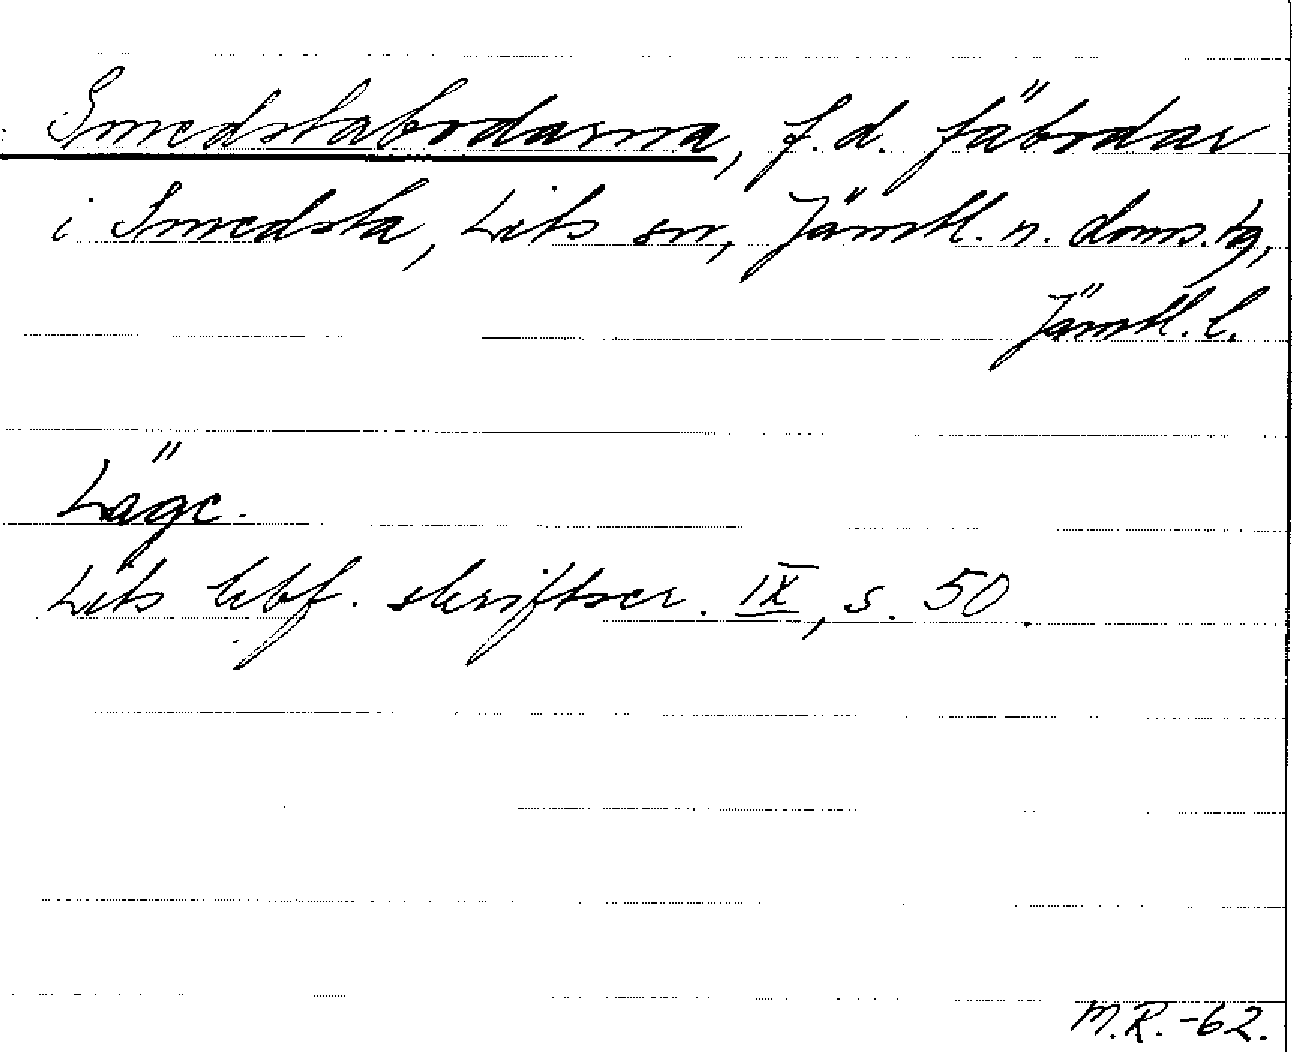 Smedstabodarna, f.d. fäbodar
i Smedsta, Lits sn, Jämtl. n. doms.hg,
Jämtl. l.
Läge.
Lits hbf. skriftser. IX, s. 50
M.R. -62.